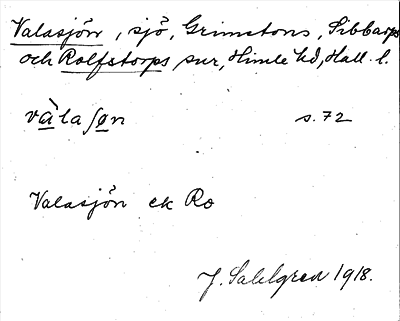 Valasjön, sjö, Grimetons, Sibbarps
och Rolfstorps snr, Himle hd, Hall. l.
và̱laʃø̱n s. 72
Valasjön ek Ro
J. Sahlgren 1918.